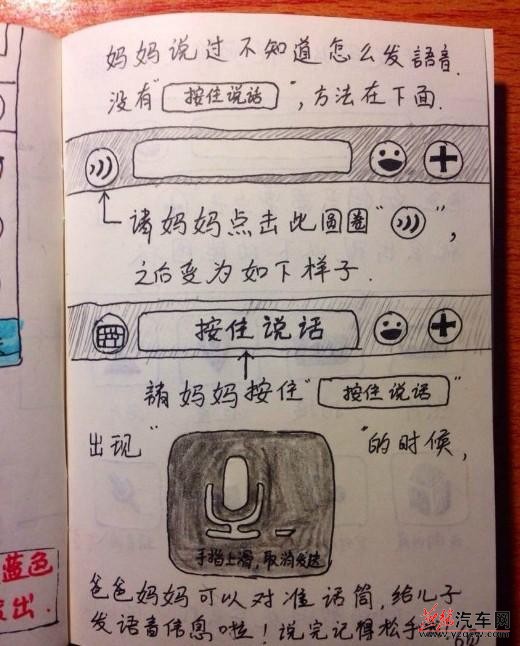 妈妈说过不知道怎么发語音.
没有"按住说话",方法在下面.
请妈妈点击此圆圈"",
之后变为如下样子.
按住说话
請妈妈按住"按住说话"
出现""的时候,
手指上滑,取消发送
爸爸妈妈可以对准话筒,给儿子
发语音信息啦!说完记得松手
蓝色
出.
汽车网
www.yzqcw.com